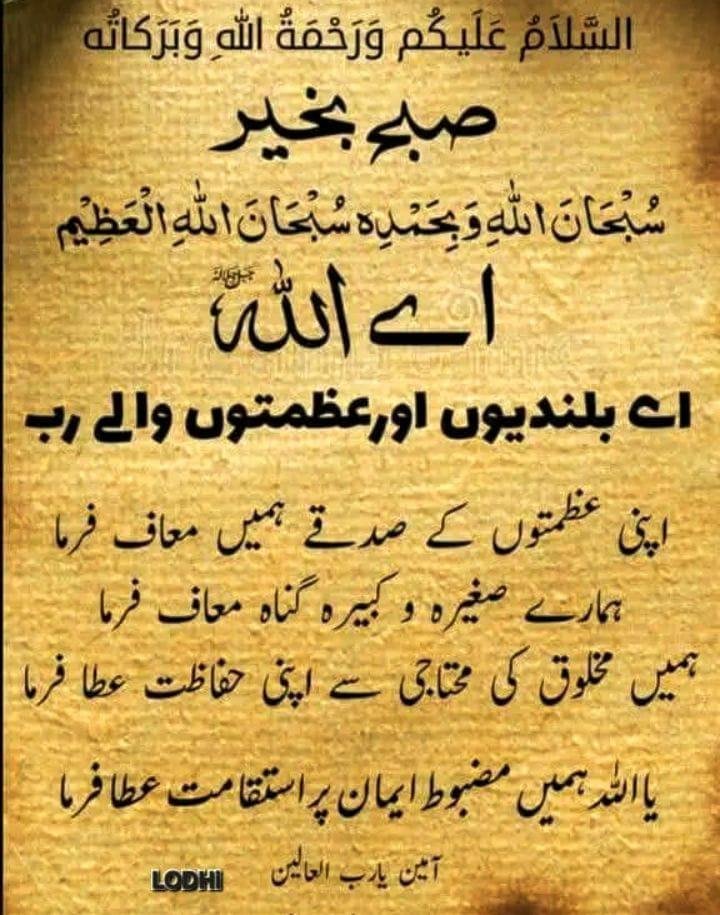 السَّلاَمُ عَلَيكُم وَرَحْمَةُ اللهِ وَبَرَكاتُه
صبح بخیر
سُبْحَانَ اللهِ وَبِحَمْدِہ سُبْحَانَ اللهِ الْعَظِیْم
اے اللہ ﷻ
اے بلندیوں اور عظمتوں والے رب
اپنی عظمتوں کے صدقے ہمیں معاف فرما
ہمارے صغیرہ و کبیرہ گناہ معاف فرما
ہمیں مخلوق کی محتاجی سے اپنی حفاظت عطا فرما
یا اللہ ہمیں مضبوط ایمان پر استقامت عطا فرما
آمین یا رب العالمین
LODHI